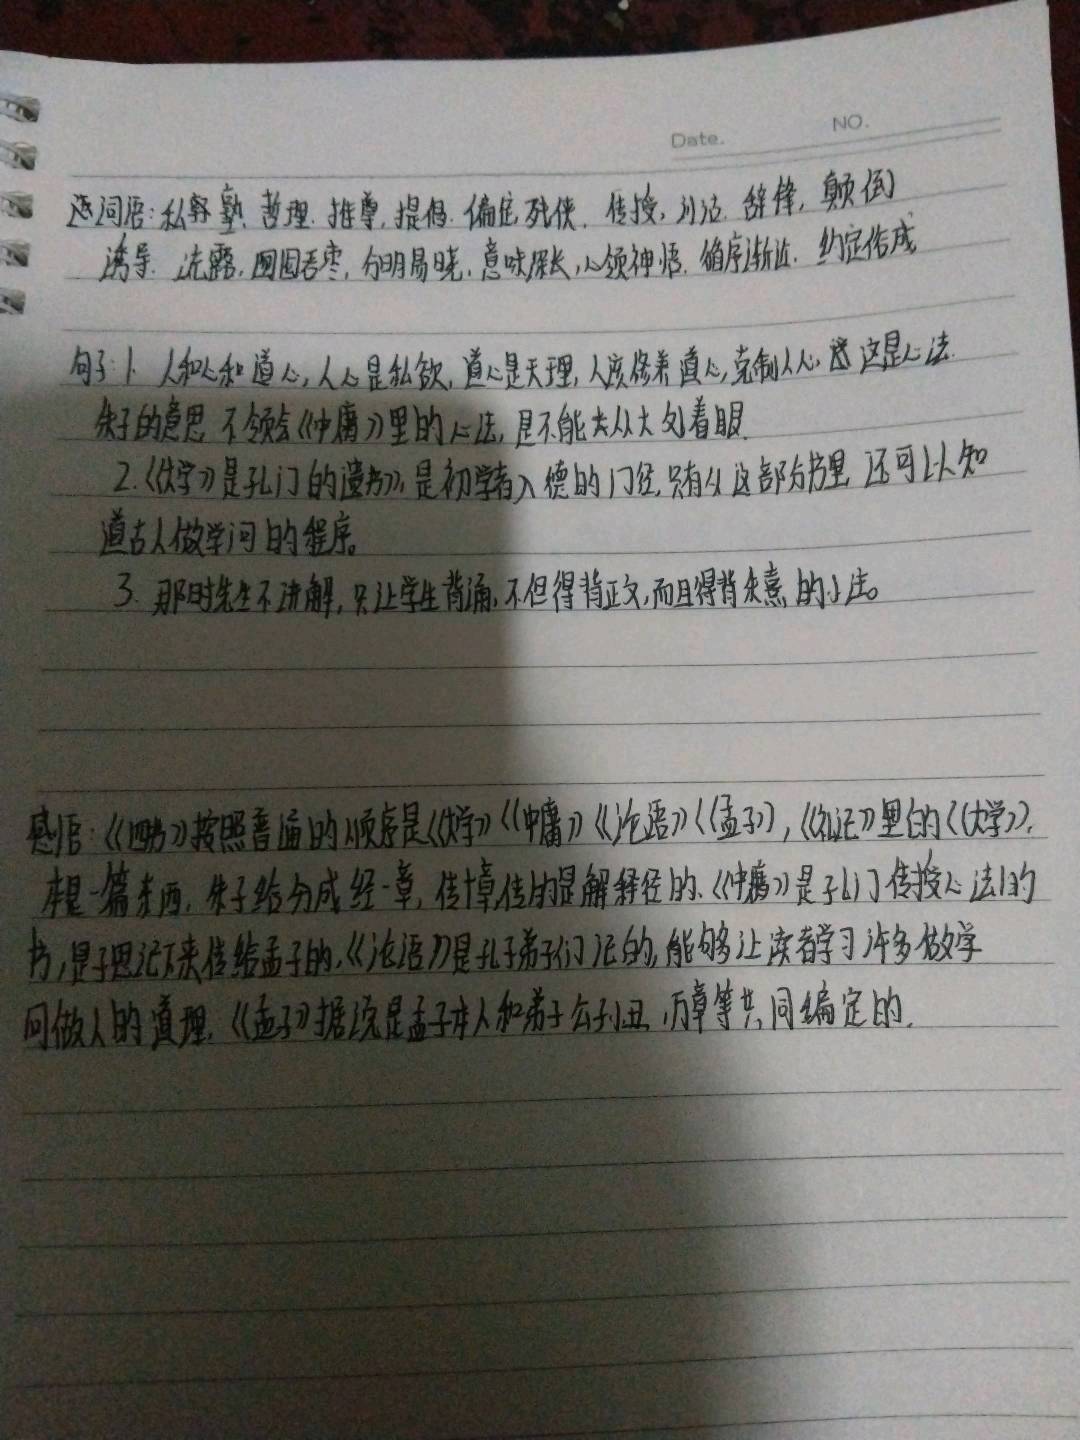 Date. NO.
词语：私塾、哲理、推尊、提倡、传授、引证、辞锋，颠倒
诱导、流露，囫囵吞枣，分明易晓，意味深长，心领神悟、循序渐进、约定俗成
句子：1. 人和心和道心，人心是私欲，道心是天理，人该修养道心，克制人心，这是心法.
朱子的意思 不领会《中庸》里的心法，是不能从大处着眼.
2.《大学》是孔门的遗书》，是初学者入德的门径，只有从这部书里 还可以知
道古人做学问的程序。
3. 那时先生不讲解，只让学生背诵，不但得背正文，而且得背朱熹的小注。
感悟：《四书》按照普通的顺序是《大学》《中庸》《论语》《孟子》，《礼记》里的《大学》，
本是一篇东西，朱子给分成经一章，传十章，传的是解释经的、《中庸》是孔门传授心法的
书，是子思记下来传给孟子的，《论语》是孔子弟子们记的，能够让读者学习许多做学
问做人的道理，《孟子》据说是孟子本人和弟子公孙丑、万章等共同编定的.